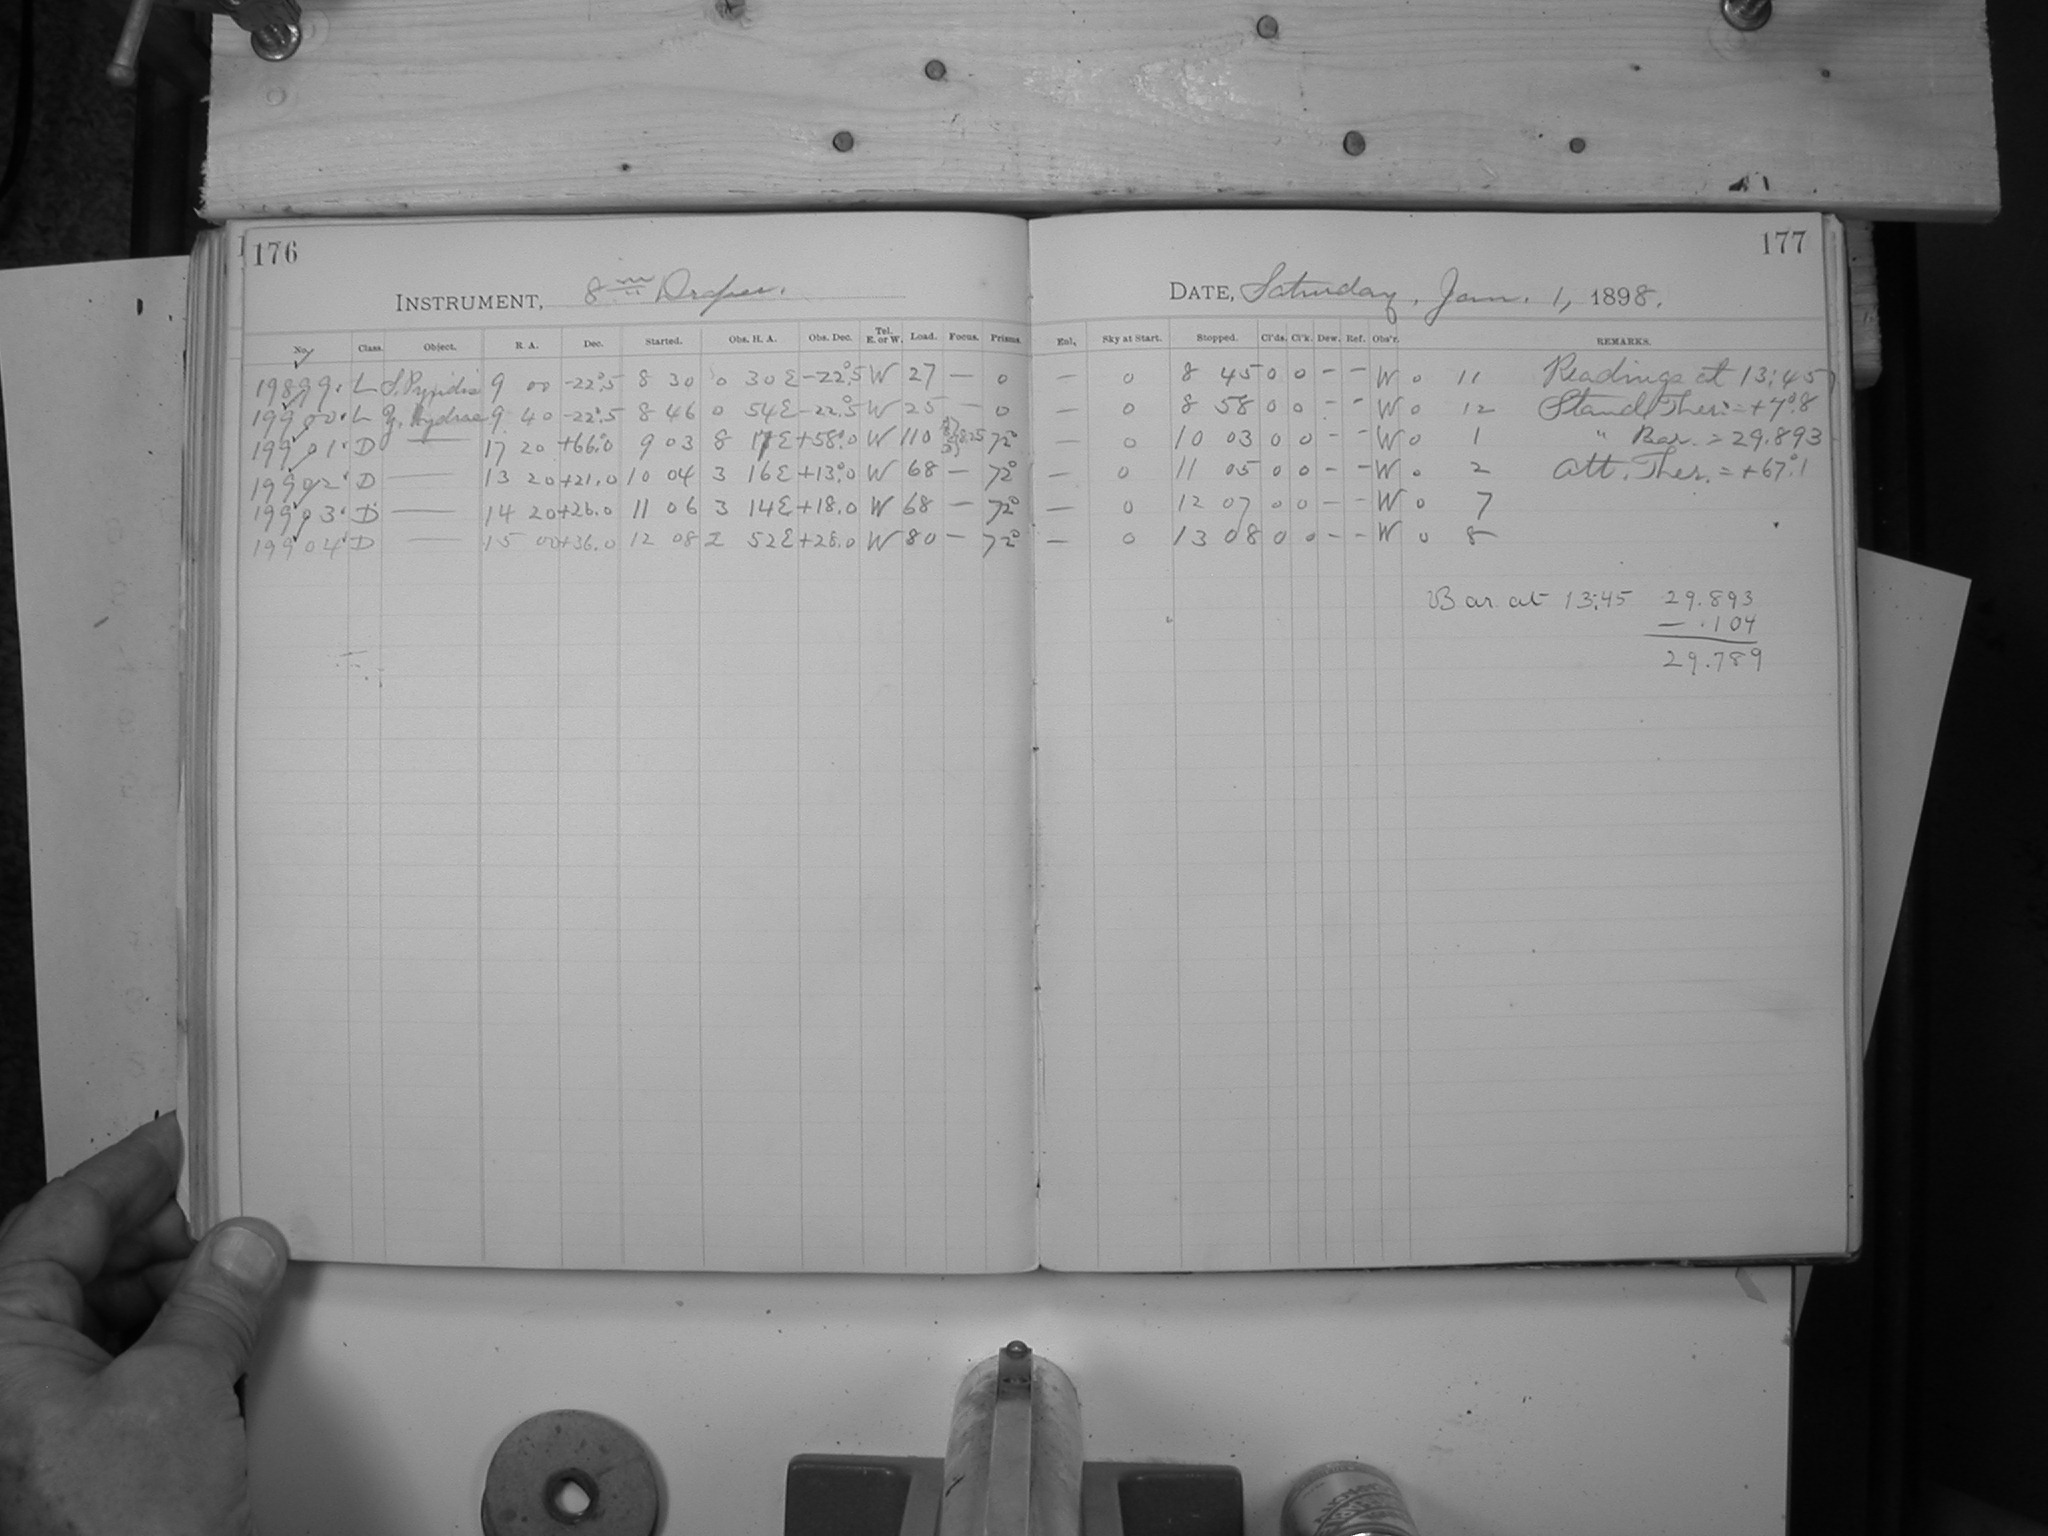 176
177
INSTRUMENT, 8 in Draper.
DATE, Saturday, Jan. 1, 1898.
No. Class. Object. R. A. Dec. Started. Obs. H. A. Obs. Dec. Tel. E. or W. Load. Focus. Prisms. Enl. Sky at Start. Stopped. Cl'ds. Cl'k. Dew. Ref. Obs'r. REMARKS.
19899. L S. Pyxidis 9 00 -22°.5 8 30 0 30 E -22°.5 W 27 — 0 — 0 8 45 0 0 - - W 0 11 Readings at 13:45
19900. L Y. Hydrae 9 40 -22°.5 8 46 0 54 E -22°.5 W 25 — 0 — 0 8 58 0 0 - - W 0 12 Stand. Ther. = +7°.8
19901. D — 17 20 +66°.0 9 03 8 17 E +58°.0 W 110 72° — 0 10 03 0 0 - - W 0 1 " Bar. = 29.893
19902. D — 13 20 +21.0 10 04 3 16 E +13°.0 W 68 — 72° — 0 11 05 0 0 - - W 0 2 Att. Ther. = +67°.1
19903. D — 14 20 +26.0 11 06 3 14 E +18.0 W 68 — 72° — 0 12 07 0 0 - - W 0 7
19904. D — 15 00 +36.0 12 08 2 52 E +28.0 W 80 — 72° — 0 13 08 0 0 - - W 0 8
Bar. at 13:45 29.893
— .104
29.789